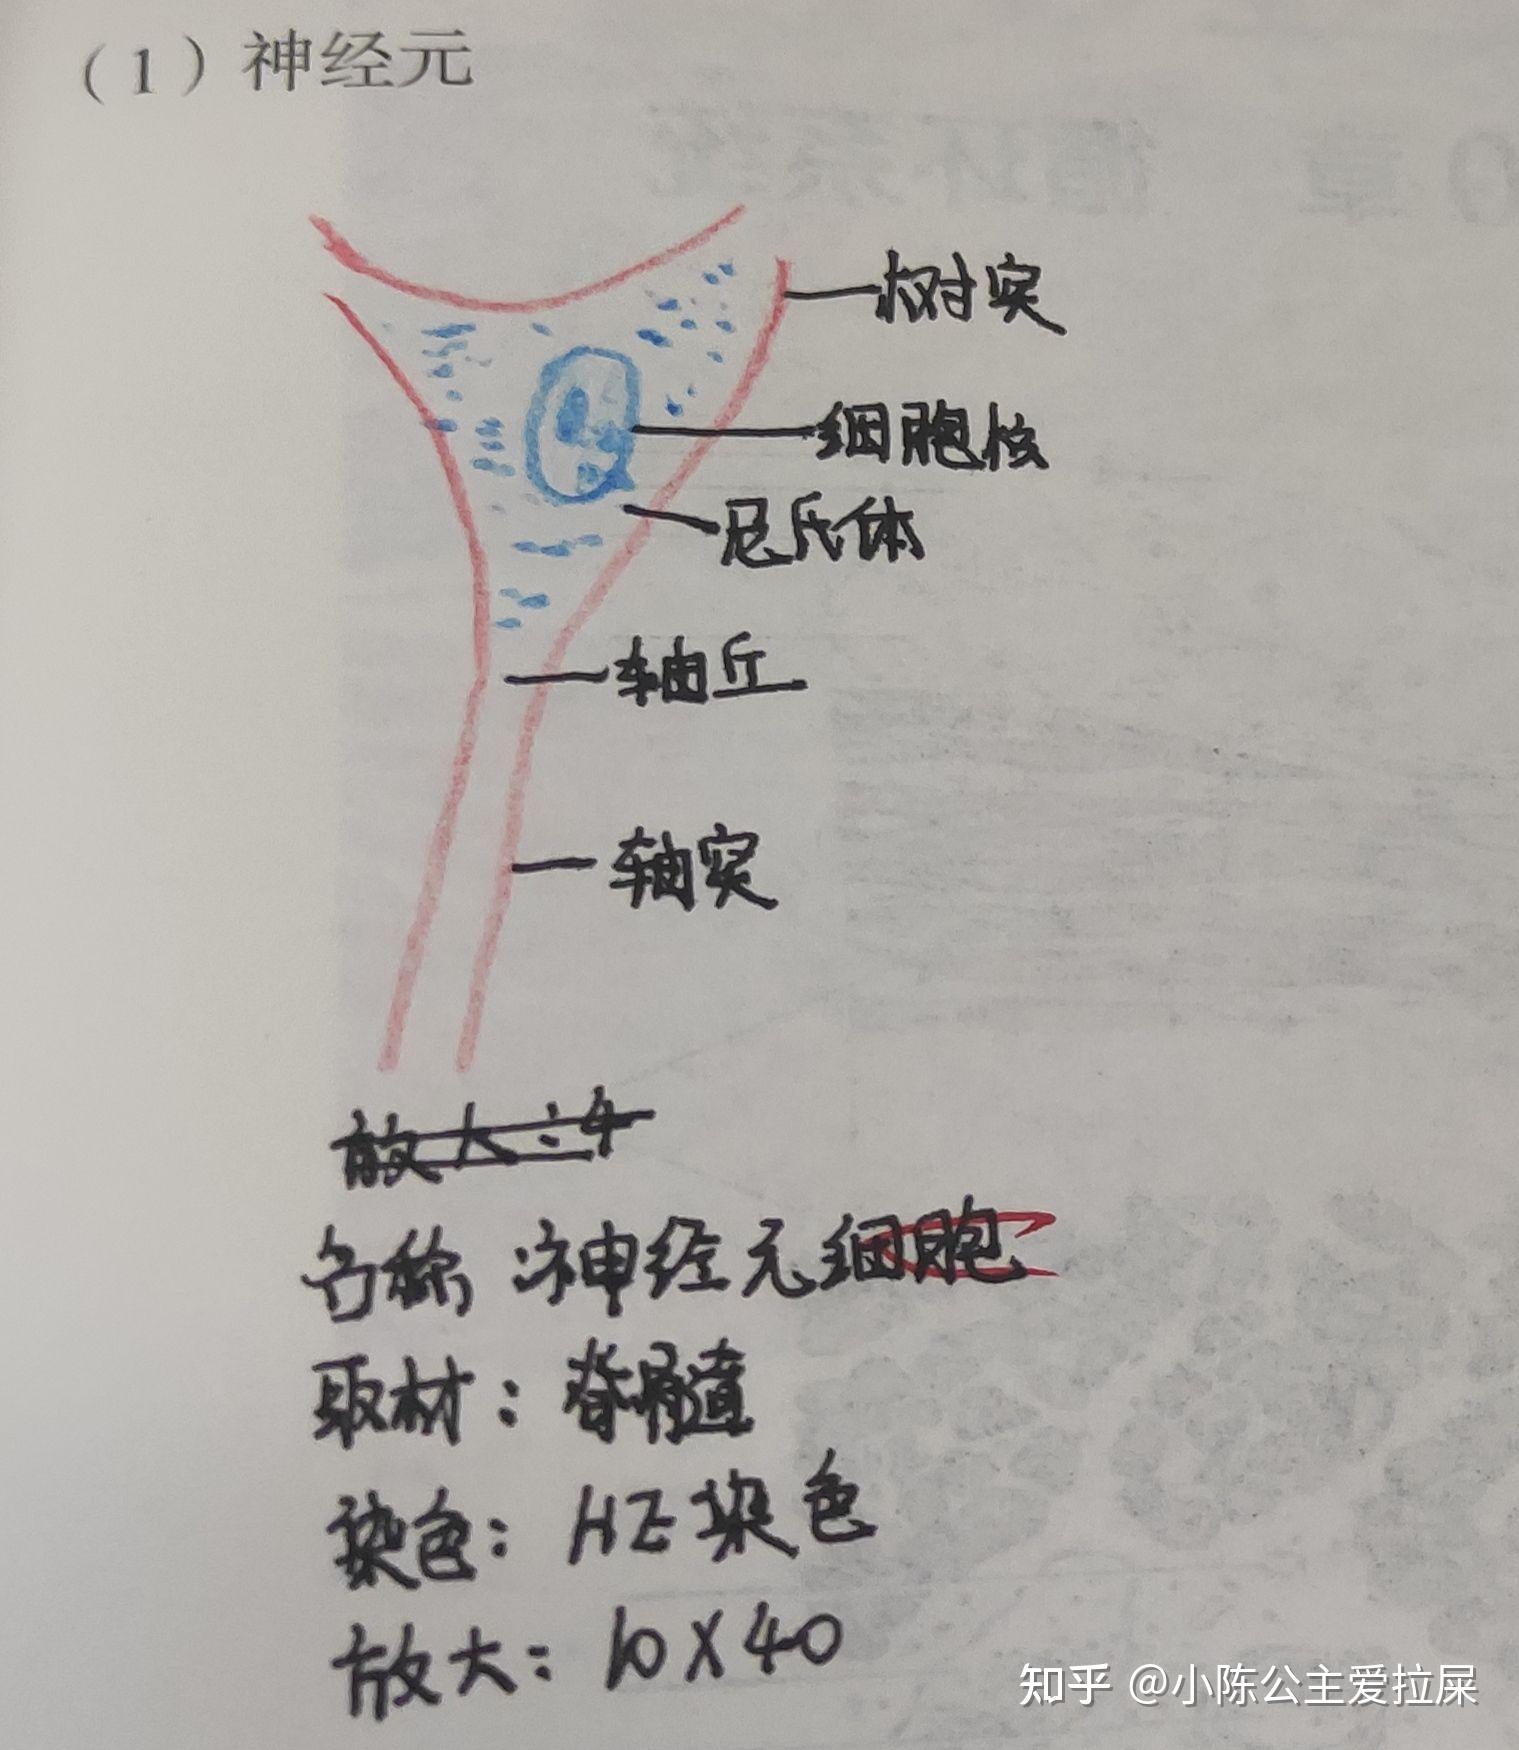 （1）神经元
树突
细胞核
尼氏体
轴丘
轴突
放大：4
名称：神经元细胞
取材：脊髓
染色：HE染色
放大：10X40
知乎 @小陈公主爱拉屎